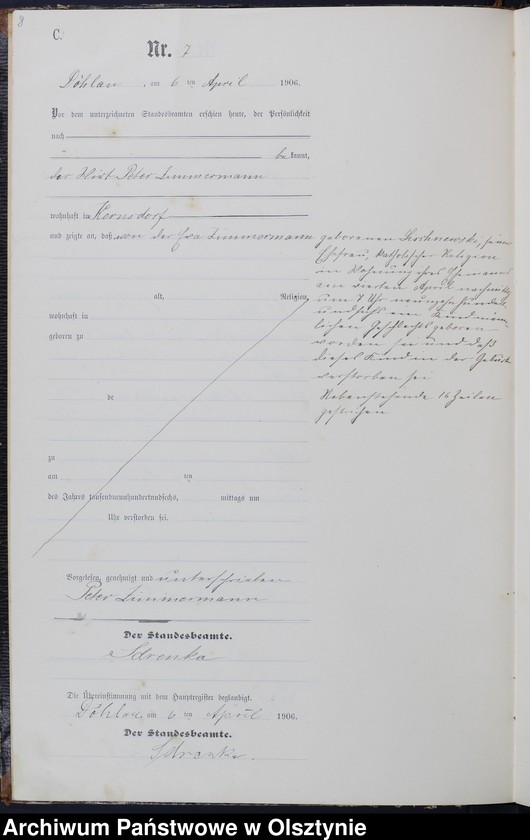 8
C.
Nr. 7
Döhlau, am 6 ten April 1906.
Vor dem unterzeichneten Standesbeamten erschien heute, der Persönlichkeit
nach
be kannt,
der Wirt Peter Zimmermann
wohnhaft in Kernsdorf
und zeigte an, daß von der Eva Zimmermann geborenen seine
Ehefrau, katholischer Religion
in Wohnung ihres Ehemanns
am vierten April nachmittags
um 7 Uhr neunzehnhundert
und sechs ein Kind männ-
lichen Geschlechts geboren
worden sei und daß
dieses Kind in der Geburt
verstorben sei
Nebenstehende 16 Zeilen
gestrichen
alt, Religion,
wohnhaft in
geboren zu
de
zu
am ten
des Jahres tausendneunhundertundsechs, mittags um
Uhr verstorben sei.
Vorgelesen, genehmigt und unterschrieben
Peter Zimmermann
Der Standesbeamte.
Sdrenka
Die Übereinstimmung mit dem Hauptregister beglaubigt.
Döhlau, am 6 ten April 1906.
Der Standesbeamte.
Sdrenka.
Archiwum Państwowe w Olsztynie